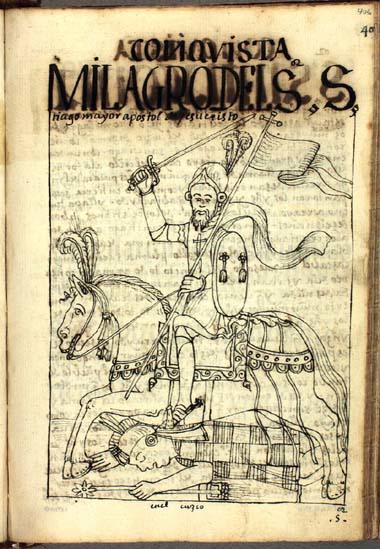 406
CONQVISTA
MILAGRO DEL S. S.
tiago mayor apostol de jesucristo
enel cuzco